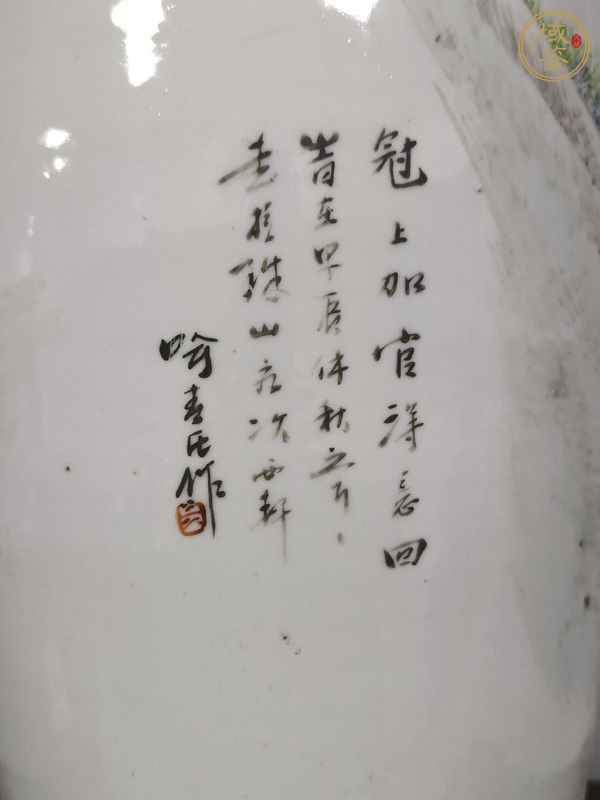 冠上加官得意回
峕在甲辰仲秋之月
於珠山客次西軒
喻春氏作